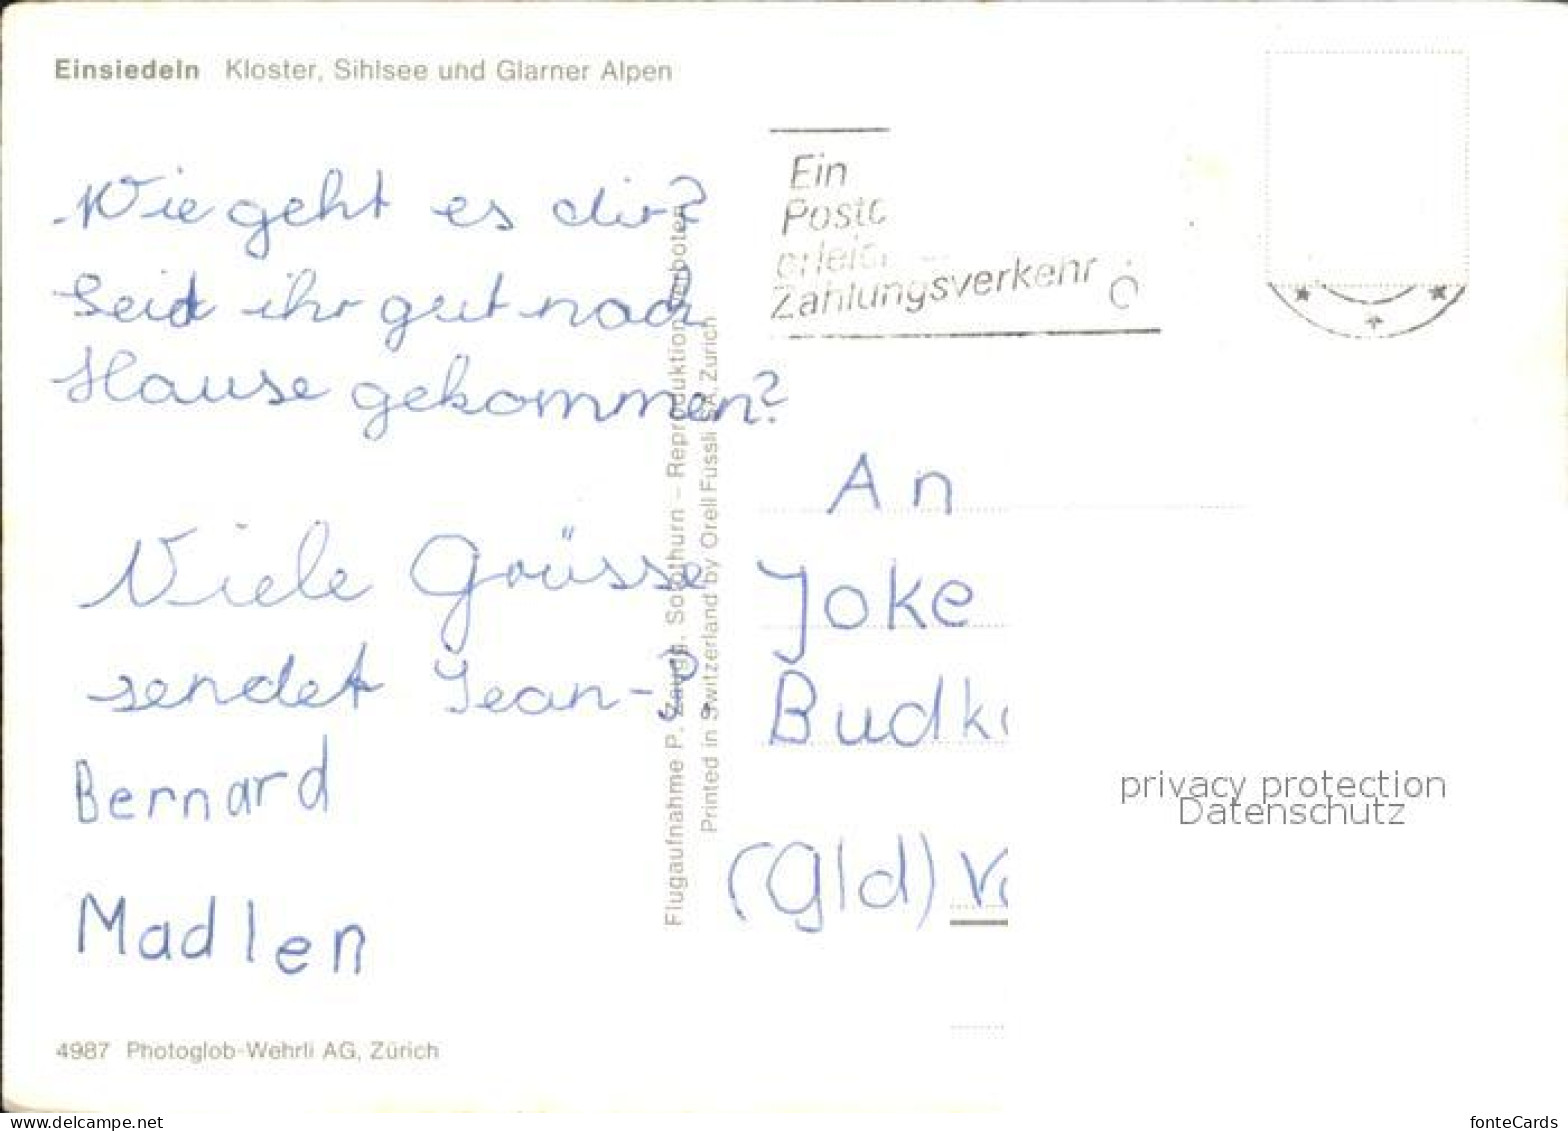 Einsiedeln Kloster, Sihlsee und Glarner Alpen
Wie geht es dir?
Seid ihr gut nach
Hause gekommen?
Viele Grüsse
sendet Jean-P.
Bernard
Madlen
4987 Photoglob-Wehrli AG, Zürich
Flugaufnahme P. Zaugg, Solothurn – Reproduktion verboten
Printed in Switzerland by Orell Füssli SA, Zürich
Ein
Postc
erleic
Zahlungsverkehr
An
Joke
Budk
(Gld) V
privacy protection
Datenschutz
www.delcampe.net
fonteCards